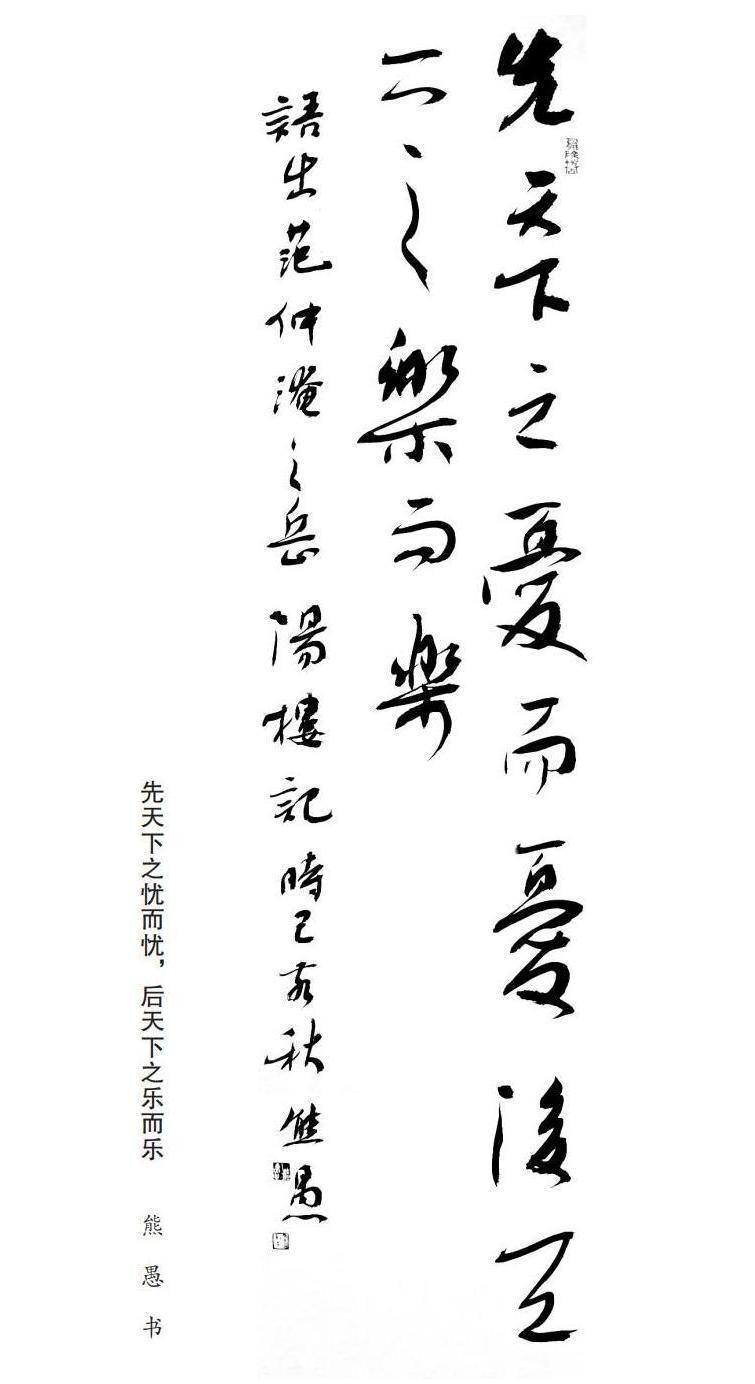 先天下之憂而憂後天
下之樂而樂
語出范仲淹之岳陽樓記時己亥秋熊愚
先天下之忧而忧，后天下之乐而乐
熊愚书